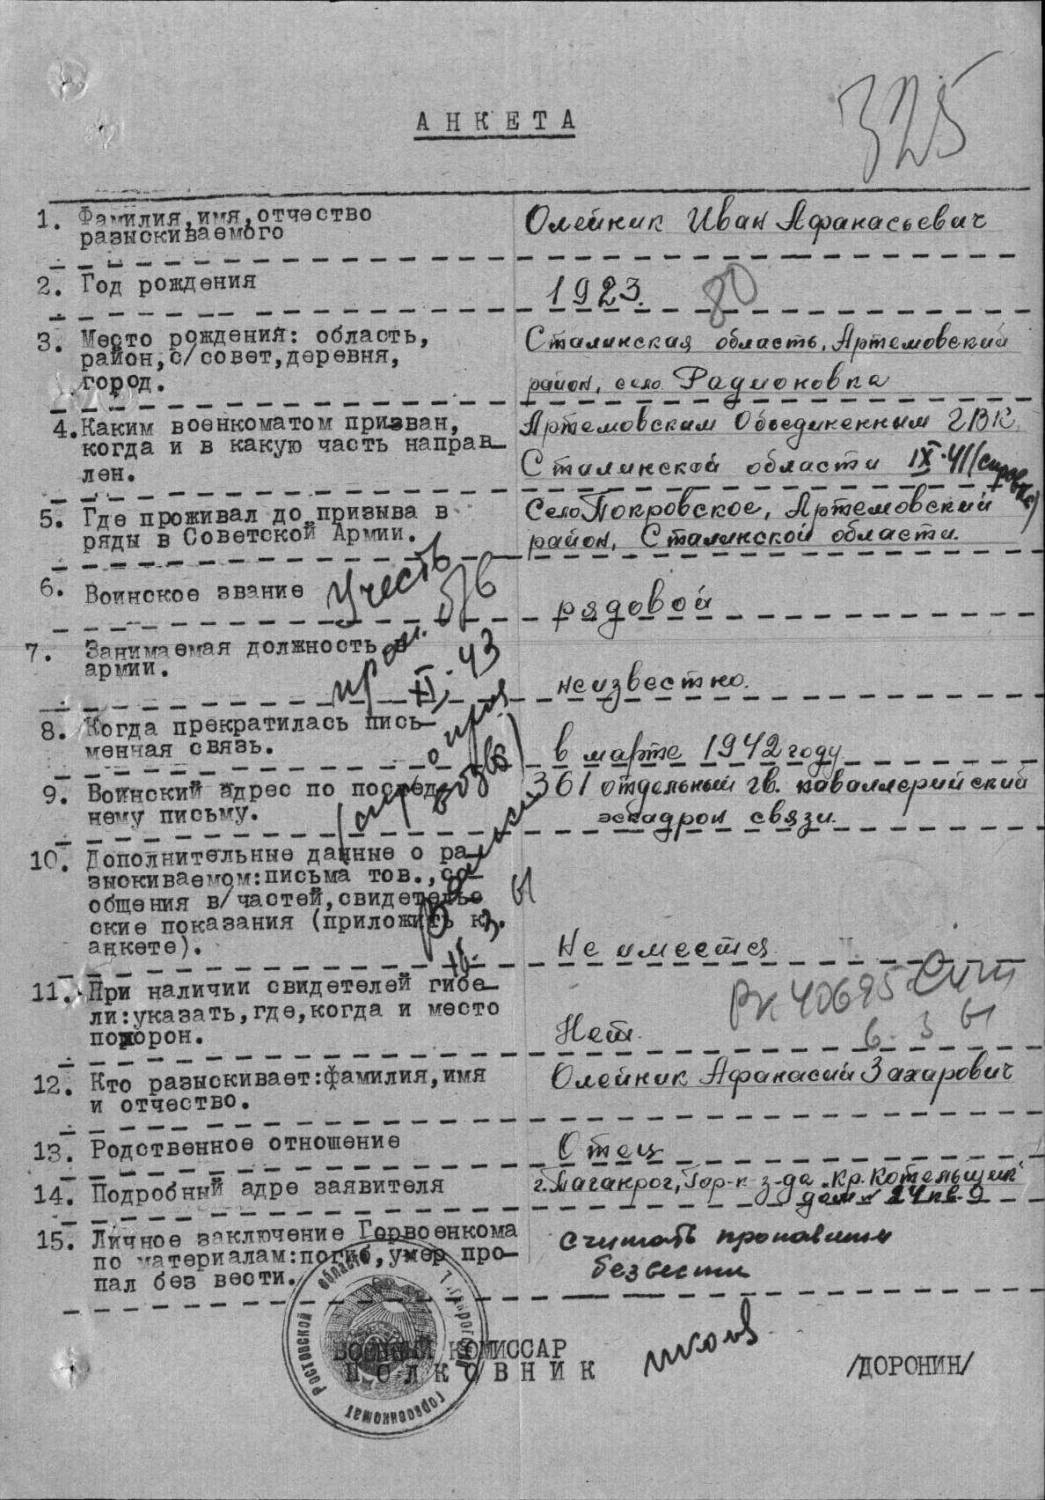 325
АНКЕТА
1. Фамилия, имя, отчество
разыскиваемого
Олейник Иван Афанасьевич
2. Год рождения
1923.
80
3. Место рождения: область,
район, с/совет, деревня,
город.
Сталинская область, Артемовский
район, село Радионовка
4. Каким военкоматом призван,
когда и в какую часть направ-
лен.
Артемовским Объединенным ГВК,
Сталинской области IX.41 (справка)
5. Где проживал до призыва в
ряды в Советской Армии.
Село Покровское, Артемовский
район, Сталинской области.
6. Воинское звание
рядовой
Учесть
б/в
проп.
XI.43
7. Занимаемая должность в
армии.
неизвестно.
8. Когда прекратилась пись-
менная связь.
в марте 1942 году
9. Воинский адрес по послед-
нему письму.
361 отдельный гв. каваллерийский
эскадрон связи.
10. Дополнительные данные о ра-
зыскиваемом: письма тов., со-
общения в/частей, свидетельс-
ские показания (приложить к
анкете).
Не имеется
3. 61
11. При наличии свидетелей гибе-
ли: указать, где, когда и место
похорон.
Нет.
РК 40695
6 3 61
12. Кто разыскивает: фамилия, имя
и отчество.
Олейник Афанасий Захарович
13. Родственное отношение
Отец
14. Подробный адре заявителя
г. Таганрог, Гор-к з-да "Кр. Котельщик"
дом 24 кв. 9
15. Личное заключение Горвоенкома
по материалам: погиб, умер, про-
пал без вести.
считать пропавшим
без вести
Ростовской области
горвоенкомат
ВОЕННЫЙ КОМИССАР
ПОЛКОВНИК
/ДОРОНИН/